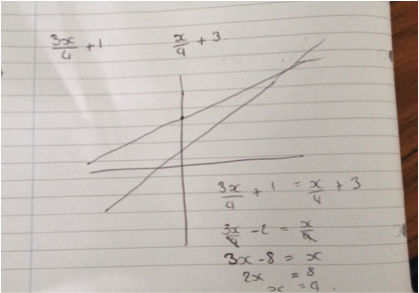 3x/4 + 1    x/4 + 3.
3x/4 + 1 = x/4 + 3
3x/4 - 2 = x/4
3x - 8 = x
2x = 8
x = 4